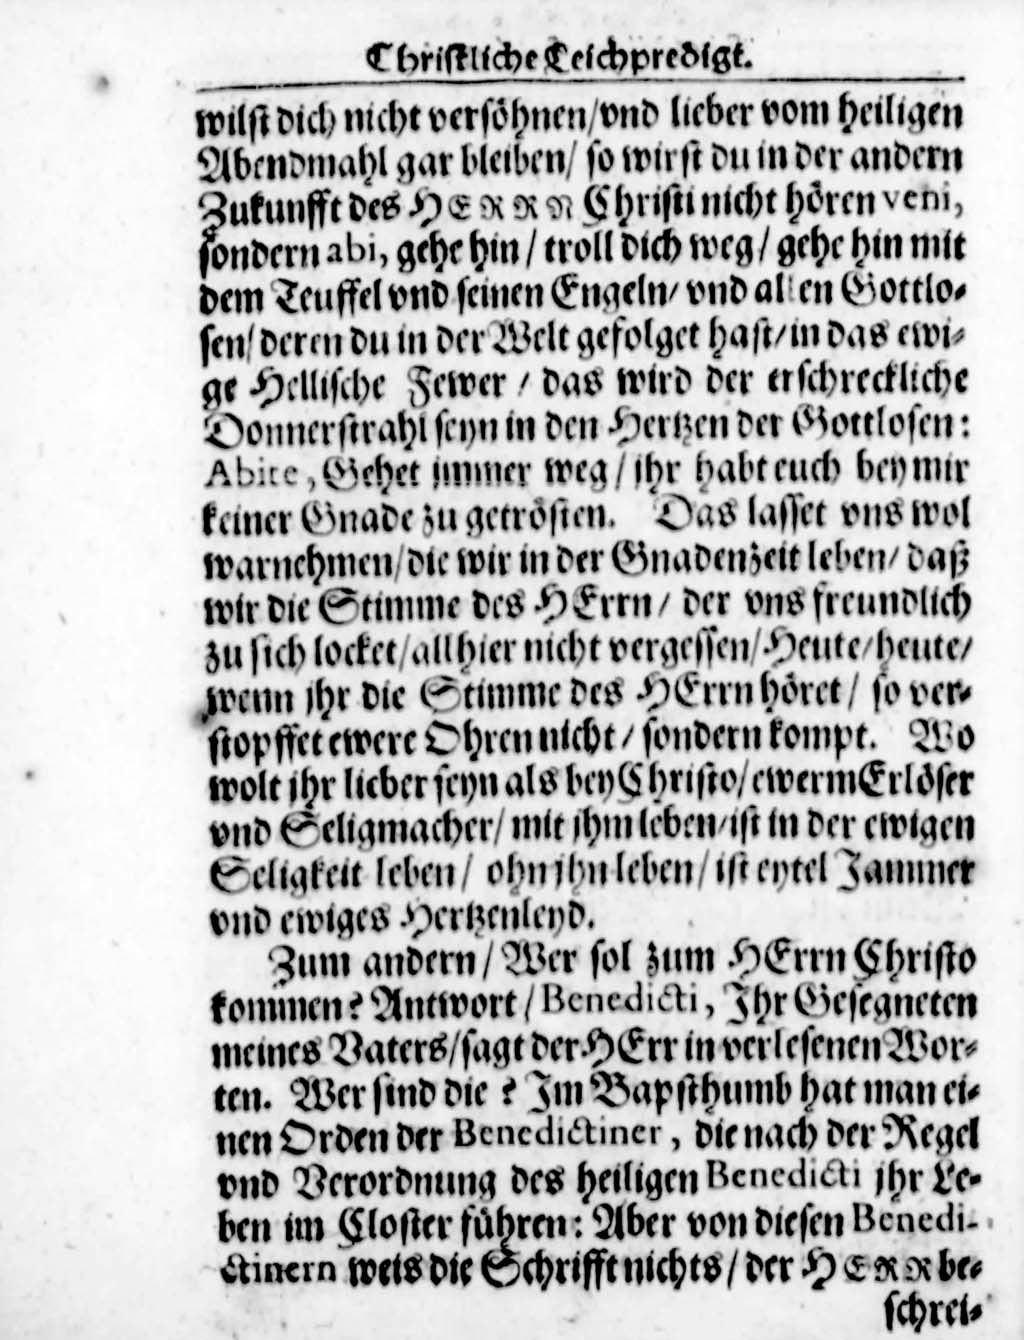 Christliche Leichpredigt.
wilst dich nicht versöhnen/vnd lieber vom heiligen
Abendmahl gar bleiben/ so wirst du in der andern
Zukunfft des HERRN Christi nicht hören veni,
sondern abi, gehe hin/ troll dich weg/ gehe hin mit
dem Teuffel vnd seinen Engeln/ vnd allen Gottlo-
sen/ deren du in der Welt gefolget hast/in das ewi-
ge Hellische Fewer/ das wird der erschreckliche
Donnerstrahl seyn in den Hertzen der Gottlosen:
Abite, Gehet jmmer weg/ jhr habt euch bey mir
keiner Gnade zu getrösten. Das lasset vns wol
warnehmen/die wir in der Gnadenzeit leben/ daß
wir die Stimme des HErrn/ der vns freundlich
zu sich locket/allhier nicht vergessen/Heute/heute/
wenn jhr die Stimme des HErrn höret/ so ver-
stopffet ewere Ohren nicht/ sondern kompt. Wo
wolt jhr lieber seyn als bey Christo/ewerm Erlöser
vnd Seligmacher/ mit jhm leben/ist in der ewigen
Seligkeit leben/ ohn jhn leben/ ist eytel Jammer
vnd ewiges Hertzenleyd.
Zum andern/ Wer sol zum HErrn Christo
kommen? Antwort/ Benedicti, Jhr Gesegneten
meines Vaters/sagt der HErr in verlesenen Wor-
ten. Wer sind die? Im Bapsthumb hat man ei-
nen Orden der Benedictiner, die nach der Regel
vnd Verordnung des heiligen Benedicti jhr Le-
ben im Closter führen: Aber von diesen Benedi-
ctinern weis die Schrifft nichts/ der HERR be-
schrei-